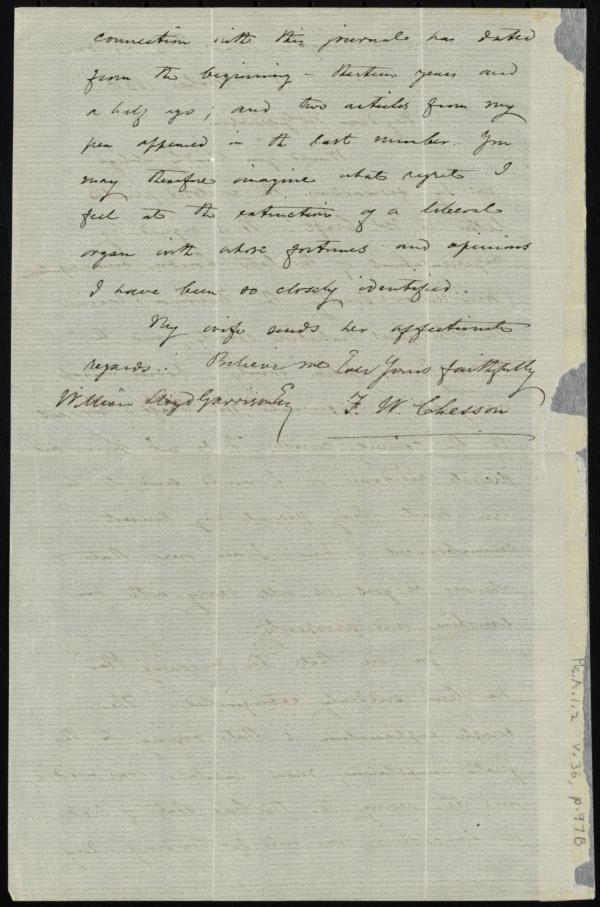 connection with this journal has dated
from the beginning – thirteen years and
a half ago; and two articles from my
pen appeared in the last number. You
may therefore imagine what regret I
feel at the extinction of a liberal
organ with whose fortunes and opinions
I have been so closely identified.
My wife sends her affectionate
regards. Believe me Ever Yours faithfully
William Lloyd Garrison Esq F. W. Chesson
Ms.A.1.2 v.36, p.97B